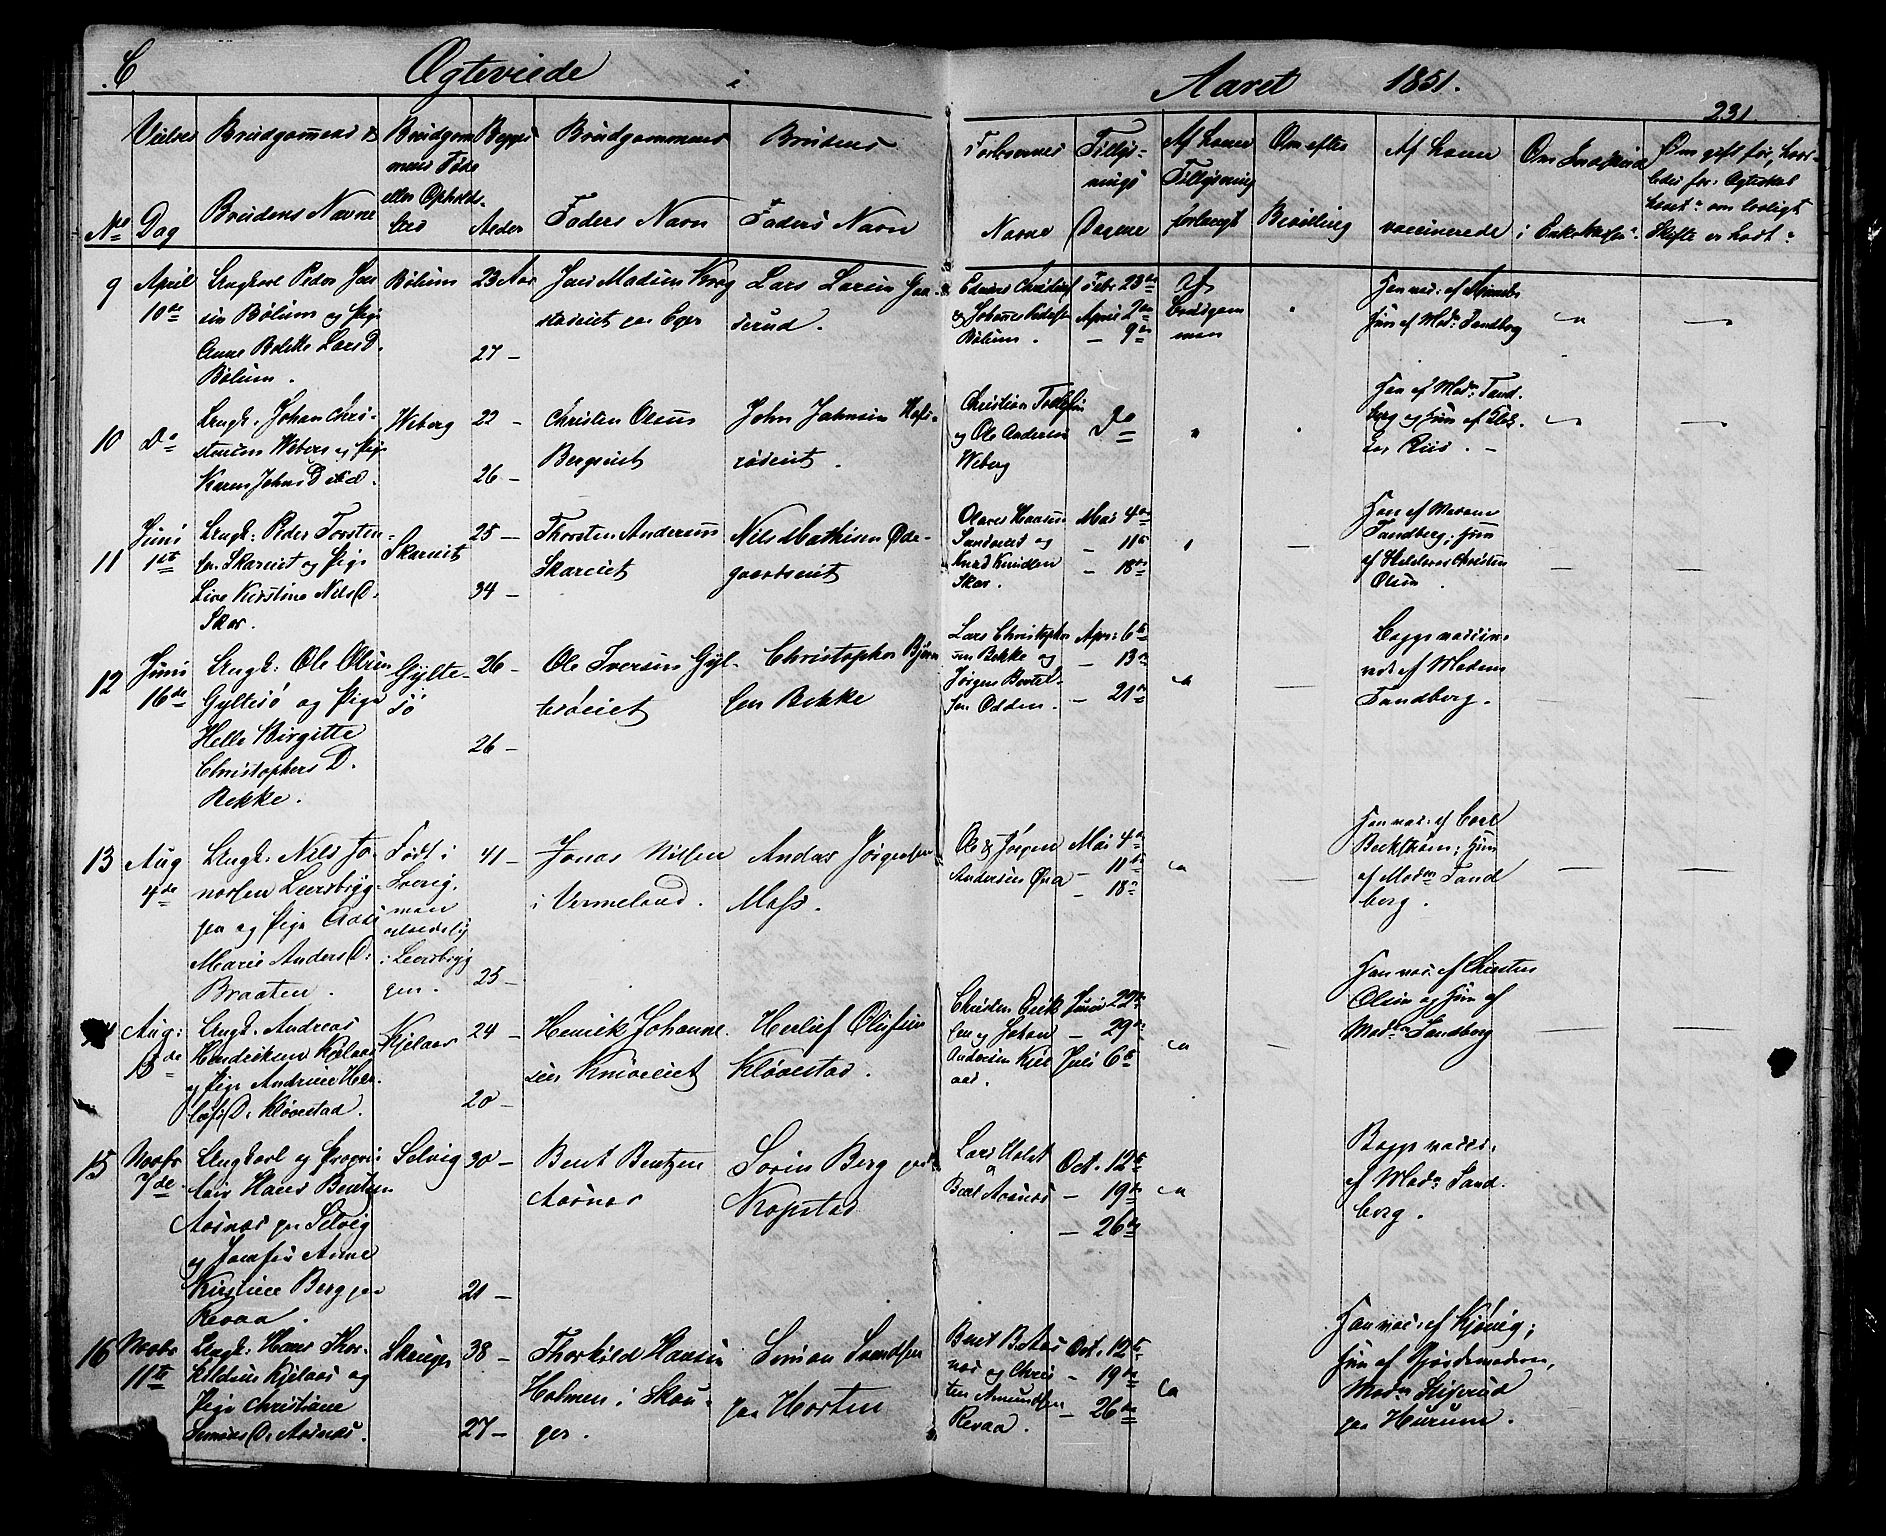 C. Ægteviede i Aaret 1851.
231.
No
Vielses Dag
Brudgommens &
Brudens Navne
Brudgommens Føde
eller Opholds-
sted
Begges
Alder
Brudgommens
Faders Navn
Brudens
Faders Navn
Forlovernes
Navne
Tillys-
nings
Dagene
Af hvem
Tillysning
forlangt
Om efter
Bevilling
Af hvem
vaccinerede
i Enkekassen
Om gift før, hvor-
9
April
10de
Ungkarl Peder Jen-
sen Bølum og Pige
Anne Bekke LarsD.
Bølum.
Bølum
23 Aar
27 –
Jens Madsen
paa Eger
Lars Larsen Gaa-
serud.
& Johannes
Bølum.
Febr. 23de
April 2den
– 9de
af
Brudgom-
men
Han vac: af
Hun af Mad: Tandberg
10
Do
Ungk. Johan Chri-
stensen Weberg og Pige
Karen JohnsD.
Weberg
22 –
26 –
Christen Olsen
Bergseiet
John Johnsen
rødeiet.
Christian Tollefsen
og Ole Andersen
Weberg
Do
Han af Mad: Tand-
berg og Hun af Klok-
ker Riis. –
11
Juni
1ste
Ungk: Peder Torsten-
sen Skareiet og Pige
Live Kirstine NilsD.
Skar.
Skareiet
25 –
34 –
Thorsten Andersen
Skareiet
Nils Mathisen Øde-
gaardseiet
Olaves Hansen
Sandeiet og
Knud Knudsen
Skar
Mai 4de
– 11te
– 18de
Han af Madame
Tandberg; Hun
af Christen
Olsen
12
Juni
16de
Ungk: Ole Olsen
Gyltesø og Pige
Helle Birgitte
Christophers D.
Bekke.
Gylte-
sø
26 –
26 –
Ole Iversen Gyl-
tesøeiet
Christopher Bjørn-
sen Bekke
Lars Christopher-
sen Bekke og
Jørgen Bertel-
sen Odden.
Apr: 6te
– 13de
– 21de
Begge vaccine-
rede af Madam
Tandberg.
13
Aug
4de
Ungk: Nils Jo-
nassen Leersbryg-
gen og Pige
Marie Anders D:
Braaten.
Født i
Sverig,
men
i Leersbryg-
gen.
41 –
25 –
Jonas Nilsen
i Vermeland.
Anders Jørgensen
Moss.
Ole & Jørgen
Andersen
Mai 4de
– 11te
– 18de
Han vac: af Carl
Beckstrøm; Hun
af Madm Tand-
berg.
Aug:
Ungk. Andreas
Hendriksen Kjelaas
og Pige Andrine Her-
lofs D. Kløvestad.
Kjelaas
24 –
20 –
Henrik Johanne-
sen Kniveeiet
Herlof Olufsen
Kløvestad.
Christen Erik-
sen og Johan
Andersen Kjel-
aas.
Juni 22de
– 29de
Juli 6te
Han vac: af Christen
Olsen og Hun af
Madm Tandberg
15
Novbr
7de
Ungkarl og Proprie-
tair Hans Bentsen
Aasnæs paa Selvig
og Jomfru Anne
Kirstine Berg paa
Revaa.
Selvig
30 –
21 –
Bent Bentzen
Aasnæs
Søren Berg paa
Kopstad
Lars Holst
&
Bent Aasnæs
Oct. 12te
– 19de
– 26de
Begge vacci:
af Madm Tand-
berg.
16
Novbr
11te
Ungk: Hans Thor-
kildsen Kjelaas og
Pige Christiane
Simons D. Aasnæs.
Skouger
38 –
27 –
Thorkild Hansen
Holmen i Skou-
ger.
Simon Svendsen
paa Horten
Bent B. Aas-
næs og Chris-
ten Amundsen
Revaa
Oct. 12te
– 19de
– 26de
Han vac: af Kjønig;
Hun af Gjordemoderen,
Madm
paa Hurum.